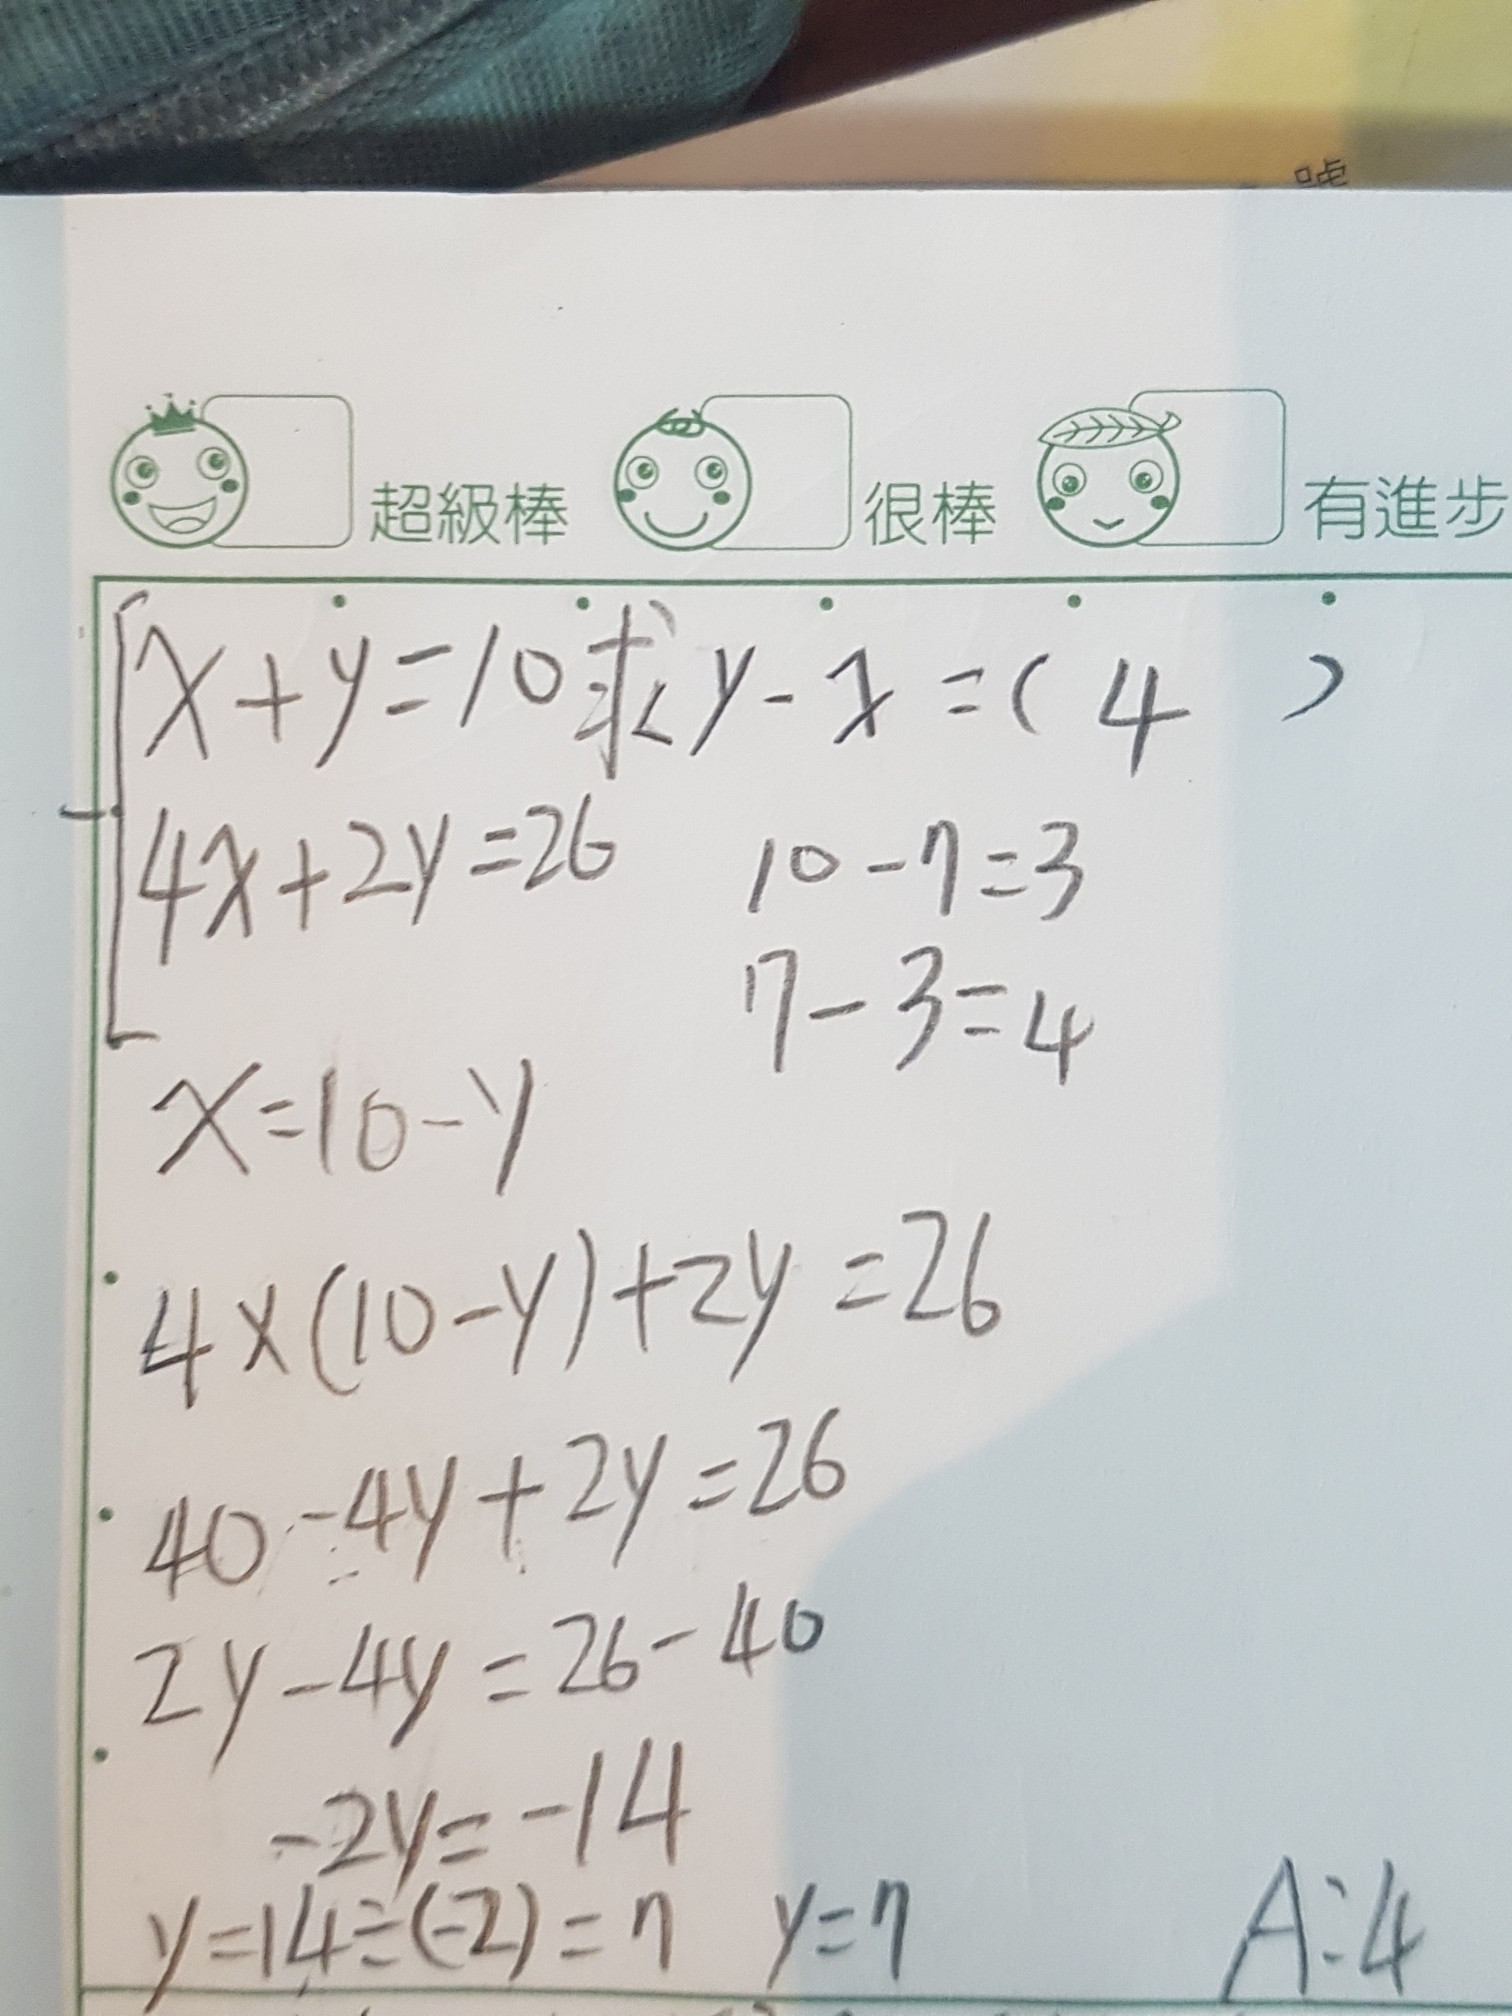 號
超級棒 很棒 有進步
x+y=10求y-x=( 4 )
4x+2y=26
10-7=3
7-3=4
x=10-y
4×(10-y)+2y=26
40-4y+2y=26
2y-4y=26-40
-2y=-14
y=14÷(-2)=7 y=7 A:4